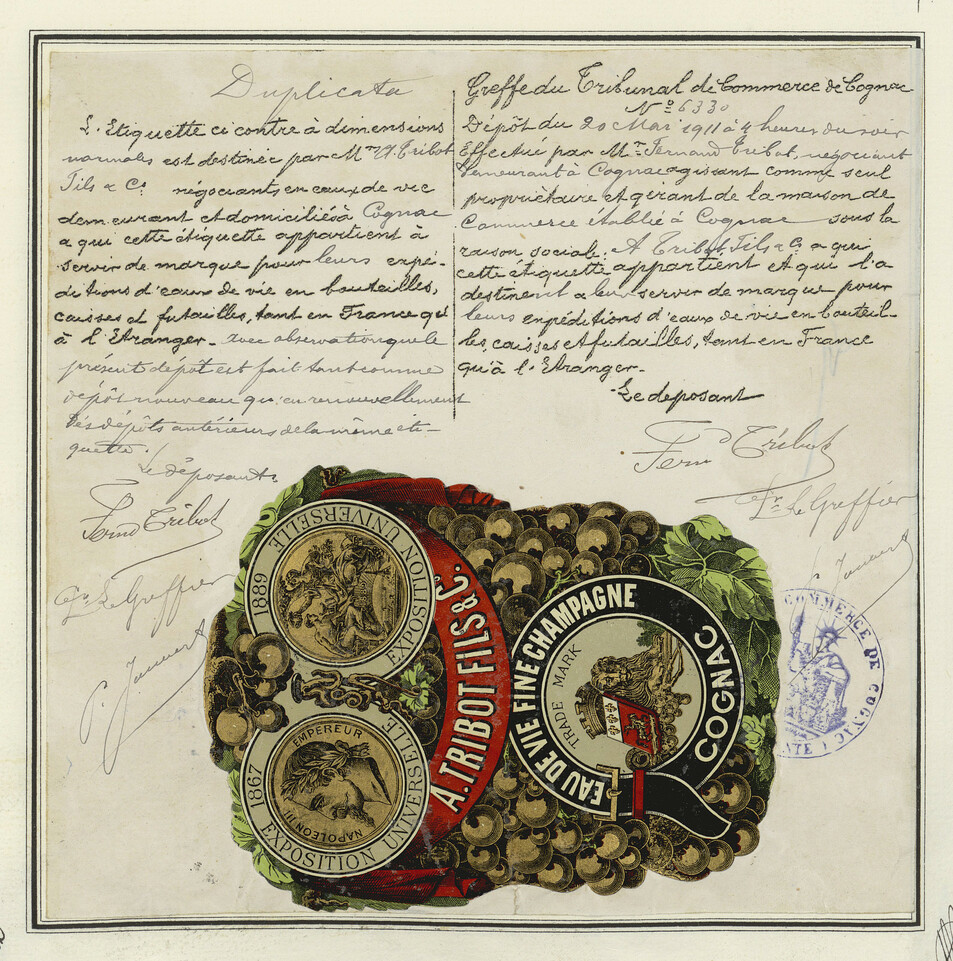 Duplicata
L'Etiquette ci contre à dimensions
normales est destinée par Mrs A. Tribot
Fils & Co négociants en eaux de vie
demeurant et domiciliés à Cognac
a qui cette étiquette appartient à
servir de marque pour leurs expé-
ditions d'eaux de vie en bouteilles,
caisses et futailles, tant en France qu'
à l'Etranger. avec observation que le
présent dépôt est fait tant comme
dépôt nouveau qu'en renouvellement
des dépôts antérieurs de la même éti-
quette.
Le déposant.
Fernd Tribot
Le Greffier
Greffe du Tribunal de Commerce de Cognac
No 6330
Dépôt du 20 Mai 1911 à 4 heures du soir
Effectué par Mr Fernand Tribot, négociant
demeurant à Cognac agissant comme seul
propriétaire et gérant de la maison de
Commerce établie à Cognac sous la
raison sociale: A Tribot, Fils & Co a qui
cette étiquette appartient et qui l'a
destinent a leur servir de marque pour
leurs expéditions d'eaux de vie en bouteil-
les, caisses et futailles, tant en France
qu'à l'Etranger.
Le déposant
Fernd Tribot
Le Greffier
1889 EXPOSITION UNIVERSELLE
1867 EXPOSITION UNIVERSELLE
NAPOLEON III EMPEREUR
A. TRIBOT FILS & Co.
EAU DE VIE FINE CHAMPAGNE
COGNAC
TRADE MARK
COMMERCE DE COGNAC